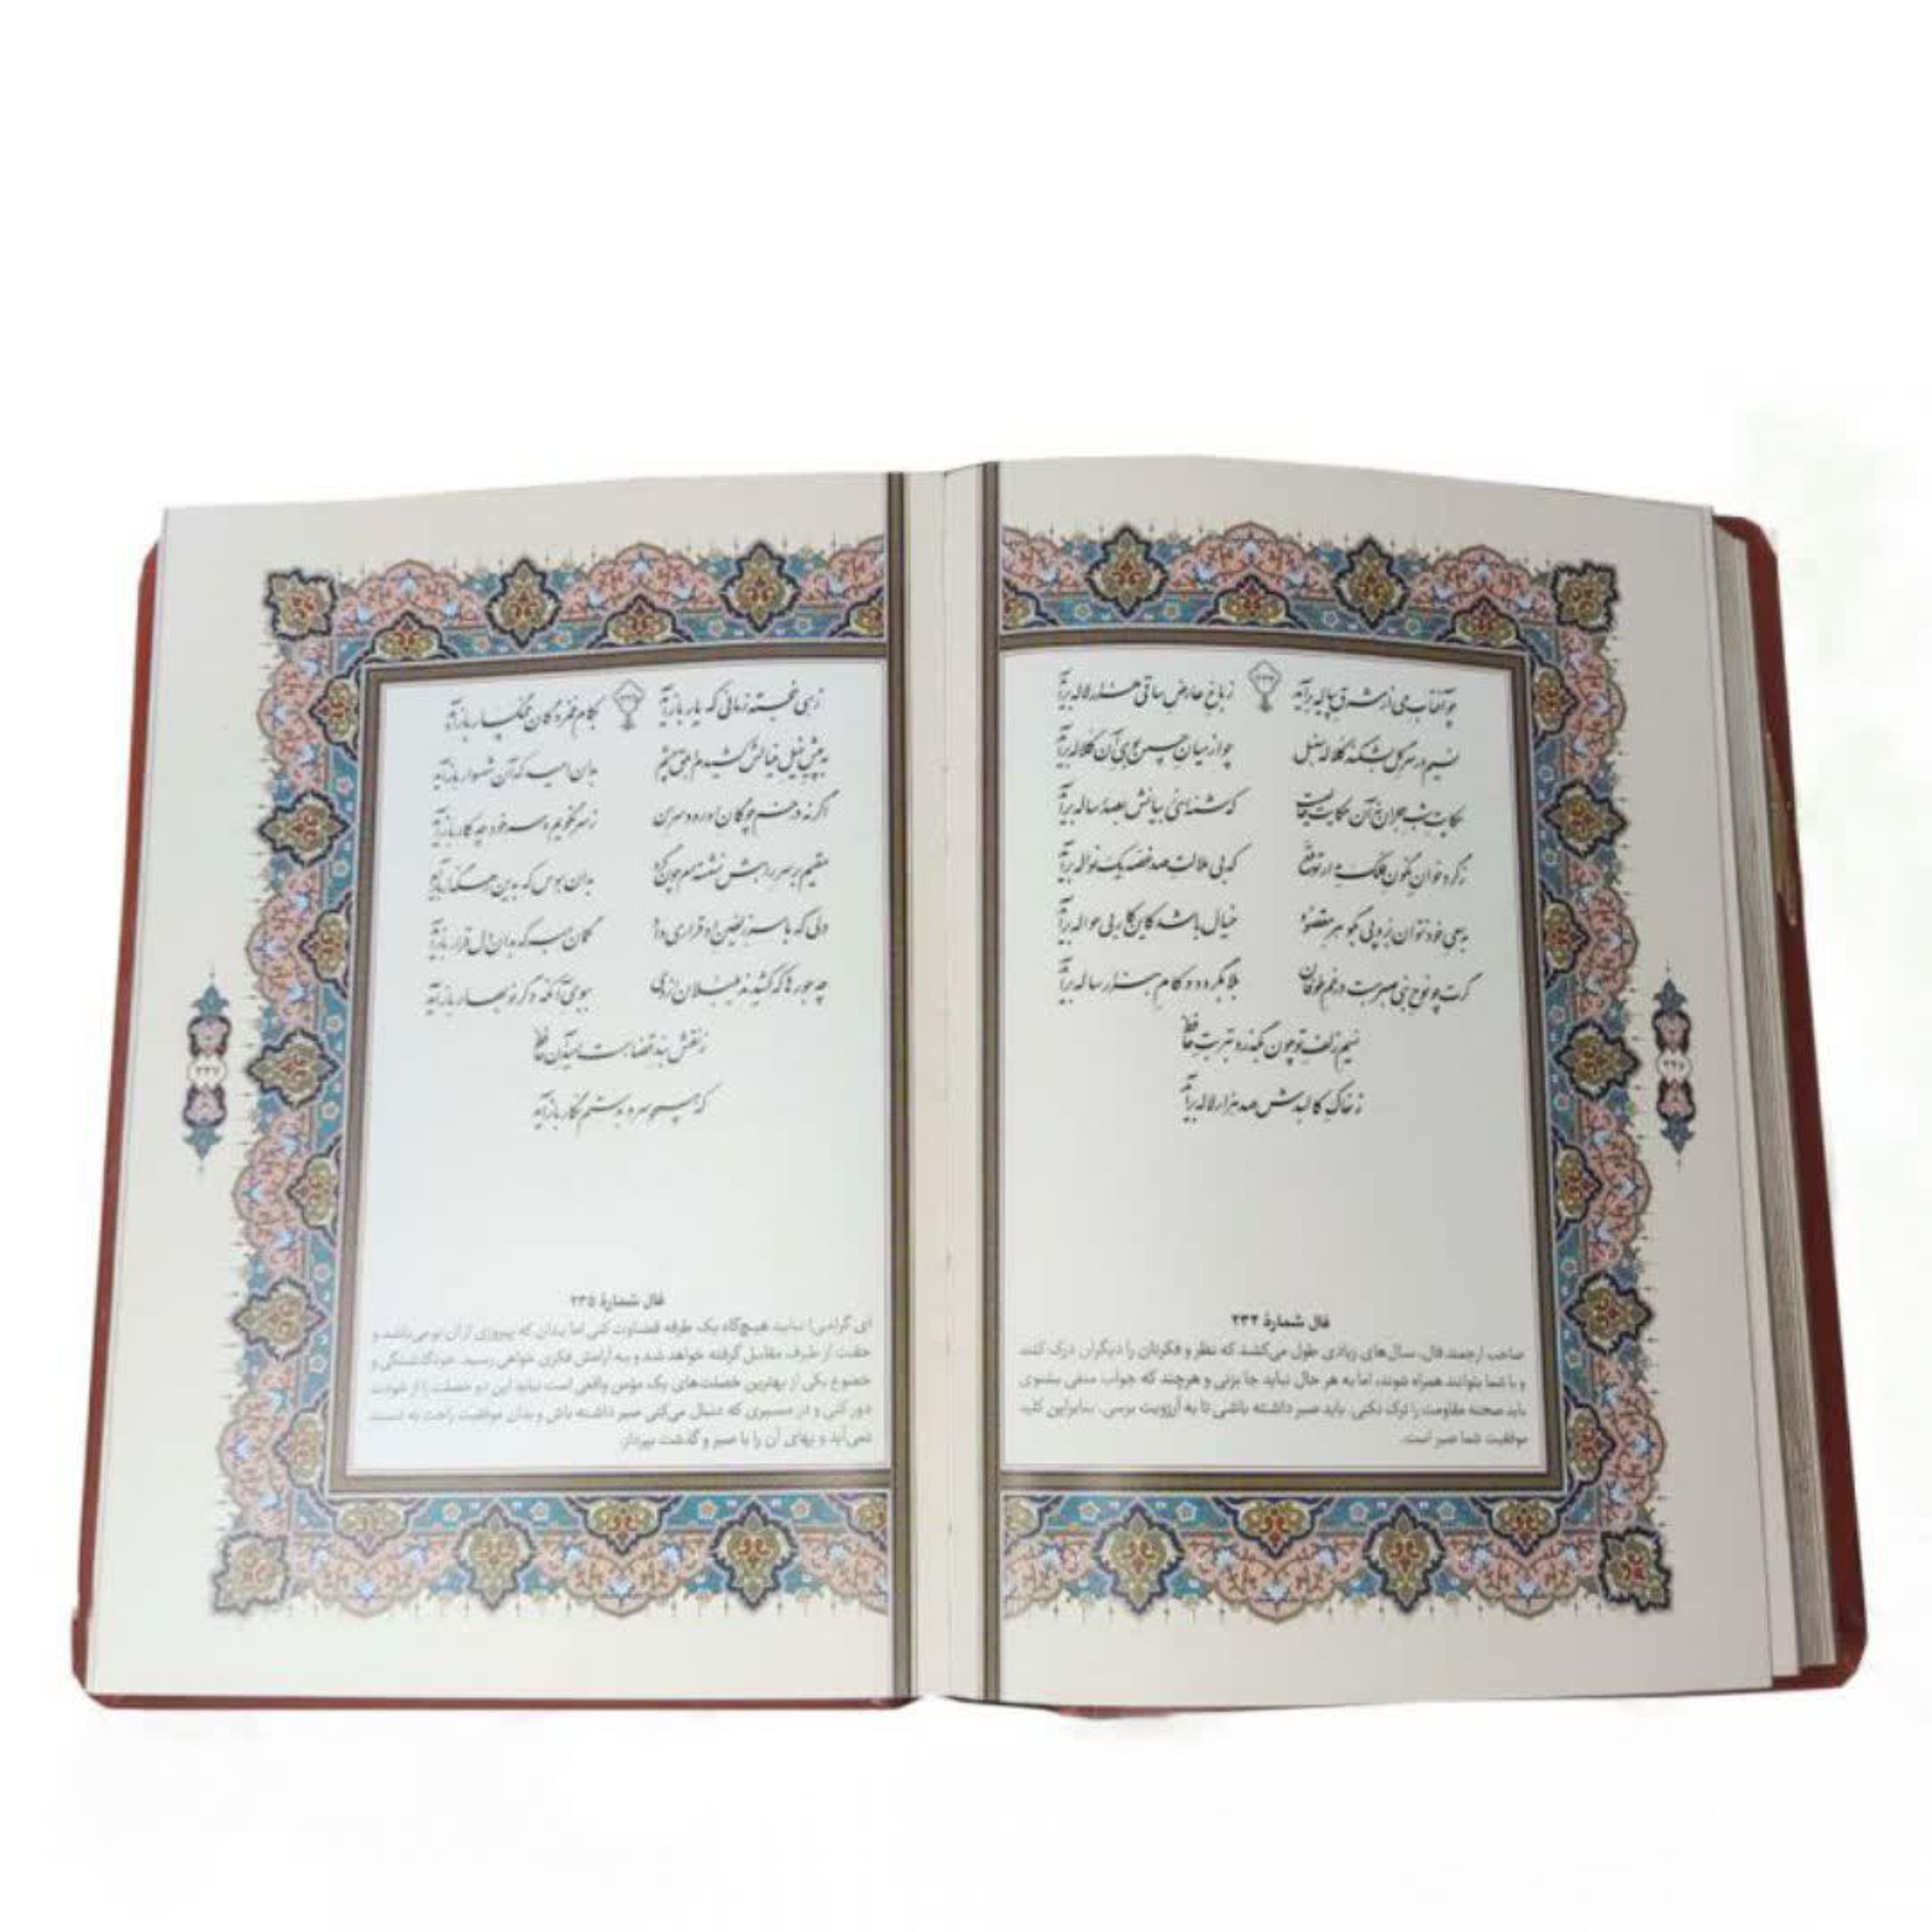 چو آفتاب می از مشرق پیاله برآید
ز باغ عارض ساقی هزار لاله برآید
نسیم در سر گل بشکند کلاله سنبل
چو از میان چمن بوی آن کلاله برآید
حکایت شب هجران نه آن حکایت حالیست
که شمه‌ای ز بیانش بصد رساله برآید
ز گرد خوان نگون فلک طمع نتوان داشت
که بی ملالت صد غصه یک نواله برآید
به سعی خود نتوان برد پی به گوهر مقصود
خیال باشد کاین کار بی حواله برآید
گرت چو نوح نبی صبر هست در غم طوفان
بلا بگردد و کام هزار ساله برآید
نسیم زلف تو چون بگذرد به تربت حافظ
ز خاک کالبدش صد هزار لاله برآید
فال شمارهٔ ۲۳۴
صاحب ارجمند فال، سال‌های زیادی طول می‌کشد که نظر و فکرتان را دیگران درک کنند
و با شما بتوانند همراه شوند، اما به هر حال نباید جا بزنی و هرچند که جواب منفی بشنوی
باید صحنه مقاومت را ترک نکنی. باید صبر داشته باشی تا به آرزویت برسی. بنابراین کلید
موفقیت شما صبر است.
زهی خجسته زمانی که یار بازآید
بکام غمزدگان غمگسار بازآید
به پیش خیل خیالش کشیدم ابلق چشم
بدان امید که آن شهسوار بازآید
اگر نه در خم چوگان او رود سر من
ز سر نگویم و سر خود چه کار بازآید
مقیم بر سر راهش نشسته‌ام چون گرد
بدان هوس که بدین رهگذار بازآید
دلی که با سر زلفین او قراری داد
گمان مبر که بدان دل قرار بازآید
چه جورها که کشیدند بلبلان از دی
ببوی آنکه دگر نوبهار بازآید
ز نقش بند قضا هست امید آن حافظ
که همچو سرو به دستم نگار بازآید
فال شمارهٔ ۲۳۵
ای گرامی! نباید هیچ‌گاه یک طرفه قضاوت کنی اما بدان که پیروزی از آن تو می‌باشد و
حقت از طرف مقابل گرفته خواهد شد و به آرامش فکری خواهی رسید. خودگذشتگی و
خضوع یکی از بهترین خصلت‌های یک مؤمن واقعی است نباید این دو خصلت را از خودت
دور کنی و در مسیری که دنبال می‌کنی صبر داشته باش و بدان موفقیت راحت به دست
نمی‌آید و بهای آن را با صبر و گذشت بپرداز.